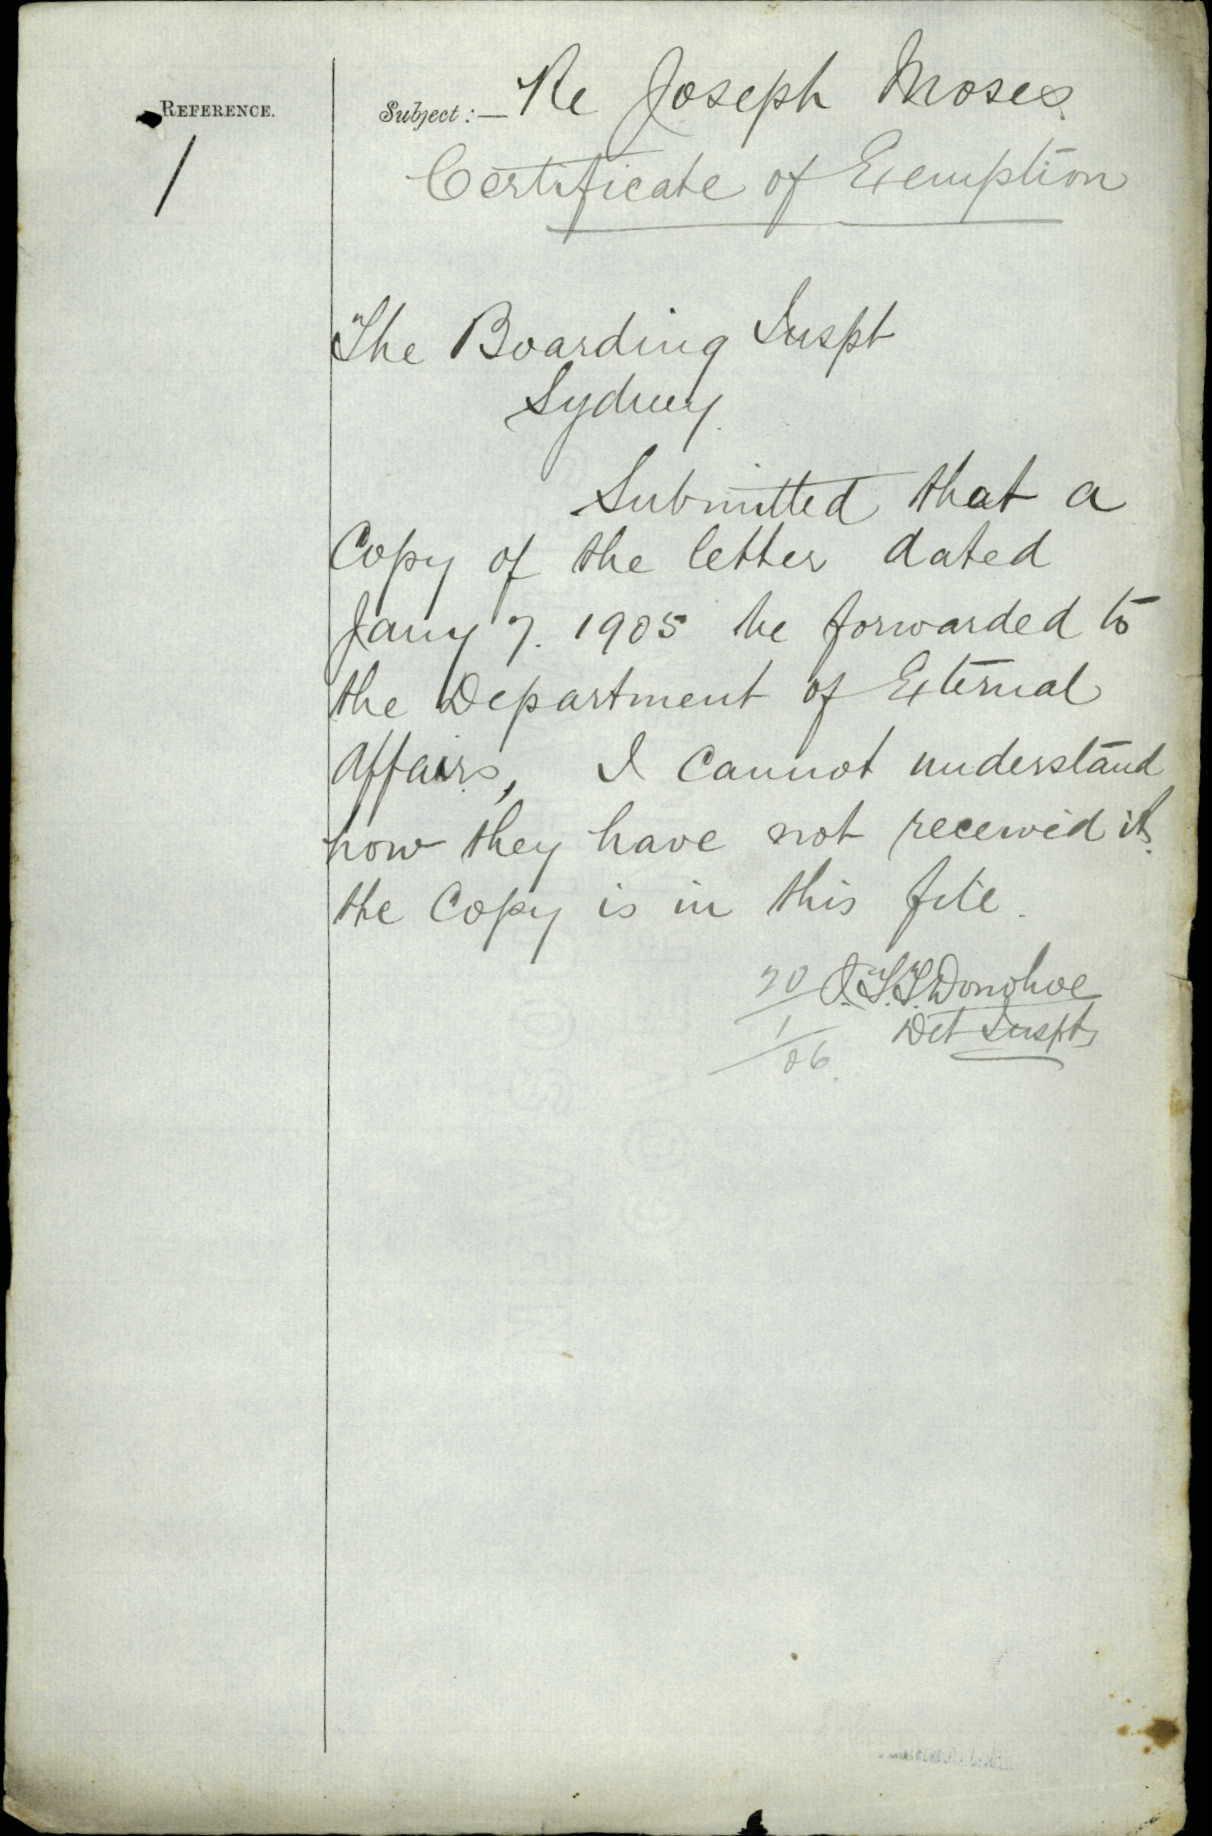 REFERENCE.
1
Subject:— Re Joseph Moses
Certificate of Exemption
The Boarding Inspt
Sydney
Submitted that a
Copy of the letter dated
Jany 7. 1905 be forwarded to
the Department of External
Affairs, I cannot understand
how they have not received it.
the Copy is in this file.
J.T.T. Donohoe
Det Inspt
20/1/06.